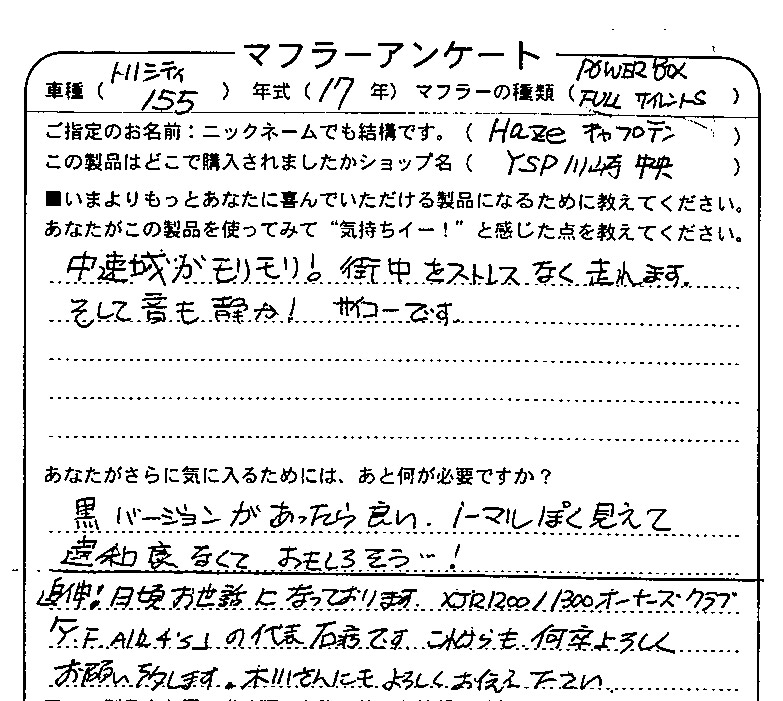 マフラーアンケート
車種（ トリシティ 155 ） 年式（ 17 年） マフラーの種類（ POWER BOX FULL サイレントS ）
ご指定のお名前：ニックネームでも結構です。（ Haze キャプテン ）
この製品はどこで購入されましたかショップ名（ YSP川崎中央 ）
■いまよりもっとあなたに喜んでいただける製品になるために教えてください。
あなたがこの製品を使ってみて“気持ちイー！”と感じた点を教えてください。
中速域がモリモリ！街中をストレスなく走れます。
そして音も静か！ サイコーです。
あなたがさらに気に入るためには、あと何が必要ですか？
黒バージョンがあったら良い。ノーマルぽく見えて
違和感なくて おもしろそう…！
追伸！日頃お世話になっております。XJR1200/1300オーナーズクラブ
の代表 です。これからも何卒よろしく
お願い致します。木川さんにもよろしくお伝え下さい。